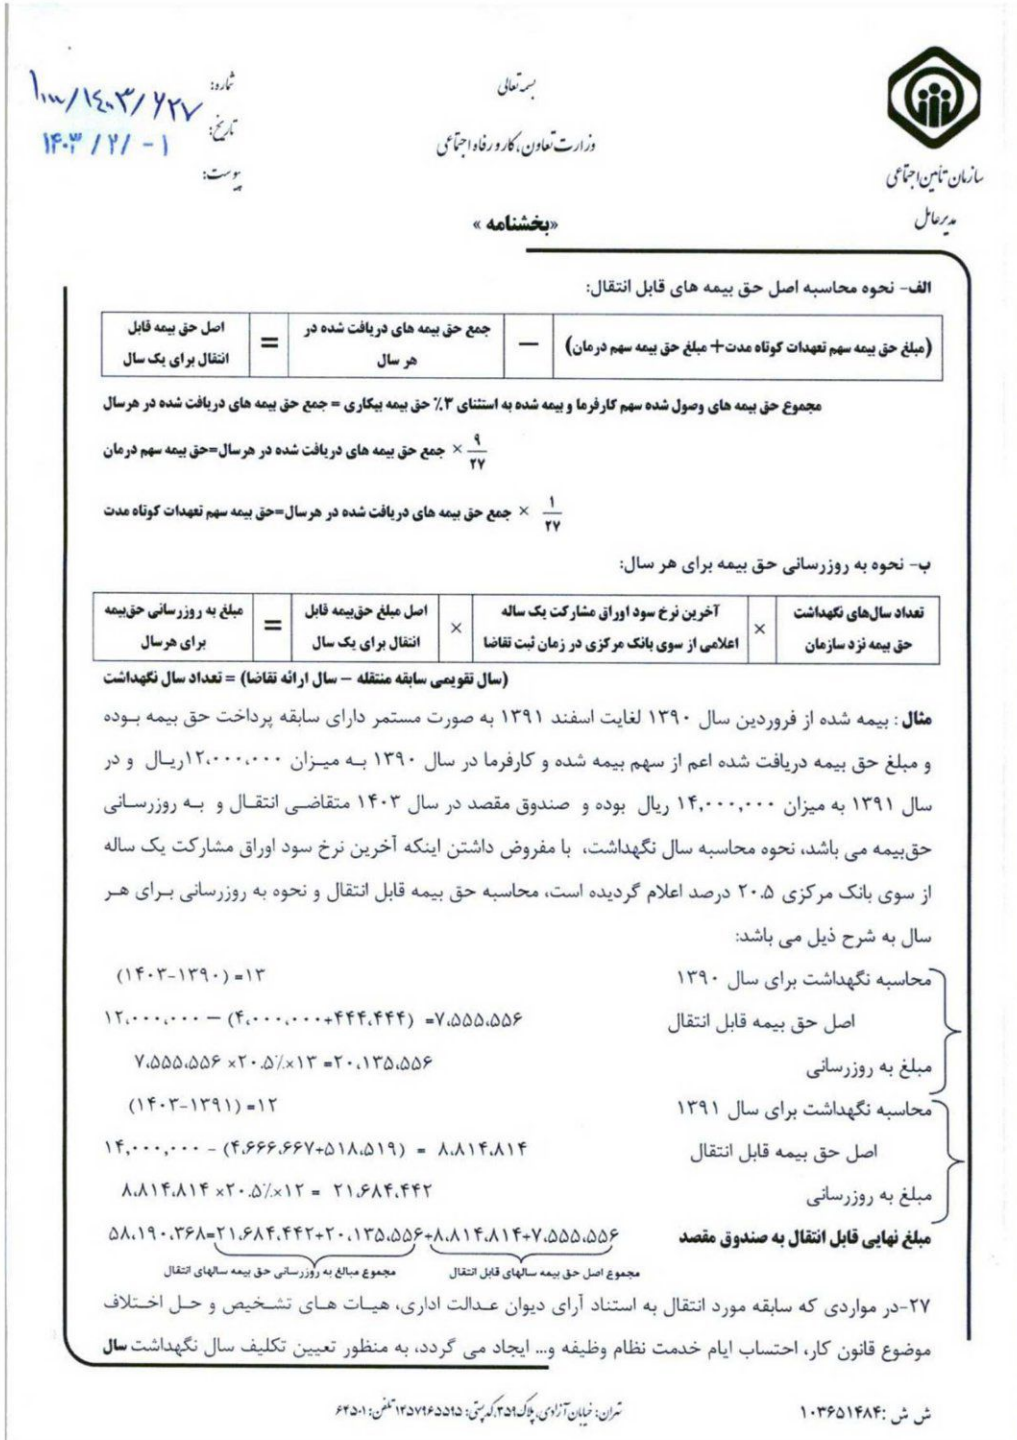 بسمه تعالی
وزارت تعاون، کار و رفاه اجتماعی
سازمان تأمین اجتماعی
مدیرعامل
شماره: ۱۰۰۰/۱۴۰۳/۶۲۷
تاریخ: ۱۴۰۳/۲/۰۱
پیوست:
«بخشنامه»
الف- نحوه محاسبه اصل حق بیمه های قابل انتقال:
(مبلغ حق بیمه سهم تعهدات کوتاه مدت+ مبلغ حق بیمه سهم درمان) — جمع حق بیمه های دریافت شده در هر سال = اصل حق بیمه قابل انتقال برای یک سال
مجموع حق بیمه های وصول شده سهم کارفرما و بیمه شده به استثنای ۳٪ حق بیمه بیکاری = جمع حق بیمه های دریافت شده در هرسال
۹/۲۷ × جمع حق بیمه های دریافت شده در هرسال=حق بیمه سهم درمان
۱/۲۷ × جمع حق بیمه های دریافت شده در هرسال=حق بیمه سهم تعهدات کوتاه مدت
ب- نحوه به روزرسانی حق بیمه برای هر سال:
تعداد سال‌های نگهداشت حق بیمه نزد سازمان × آخرین نرخ سود اوراق مشارکت یک ساله اعلامی از سوی بانک مرکزی در زمان ثبت تقاضا × اصل مبلغ حق‌بیمه قابل انتقال برای یک سال = مبلغ به روزرسانی حق‌بیمه برای هرسال
(سال تقویمی سابقه منتقله – سال ارائه تقاضا) = تعداد سال نگهداشت
مثال: بیمه شده از فروردین سال ۱۳۹۰ لغایت اسفند ۱۳۹۱ به صورت مستمر دارای سابقه پرداخت حق بیمه بوده
و مبلغ حق بیمه دریافت شده اعم از سهم بیمه شده و کارفرما در سال ۱۳۹۰ به میزان ۱۲،۰۰۰،۰۰۰ریال و در
سال ۱۳۹۱ به میزان ۱۴,۰۰۰,۰۰۰ ریال بوده و صندوق مقصد در سال ۱۴۰۳ متقاضی انتقال و به روزرسانی
حق‌بیمه می باشد، نحوه محاسبه سال نگهداشت، با مفروض داشتن اینکه آخرین نرخ سود اوراق مشارکت یک ساله
از سوی بانک مرکزی ۲۰.۵ درصد اعلام گردیده است، محاسبه حق بیمه قابل انتقال و نحوه به روزرسانی برای هر
سال به شرح ذیل می باشد:
محاسبه نگهداشت برای سال ۱۳۹۰ (۱۴۰۳-۱۳۹۰) =۱۳
اصل حق بیمه قابل انتقال ۱۲,۰۰۰,۰۰۰ — (۴,۰۰۰,۰۰۰+۴۴۴,۴۴۴) =۷،۵۵۵،۵۵۶
مبلغ به روزرسانی ۷،۵۵۵،۵۵۶ ×۲۰.۵٪×۱۳ =۲۰،۱۳۵،۵۵۶
محاسبه نگهداشت برای سال ۱۳۹۱ (۱۴۰۳-۱۳۹۱) =۱۲
اصل حق بیمه قابل انتقال ۱۴,۰۰۰,۰۰۰ - (۴،۶۶۶،۶۶۷+۵۱۸،۵۱۹) = ۸،۸۱۴،۸۱۴
مبلغ به روزرسانی ۸،۸۱۴،۸۱۴ ×۲۰.۵٪×۱۲ = ۲۱,۶۸۴,۴۴۲
مبلغ نهایی قابل انتقال به صندوق مقصد ۵۸،۱۹۰،۳۶۸=۲۱,۶۸۴,۴۴۲+۲۰،۱۳۵،۵۵۶+۸،۸۱۴،۸۱۴+۷،۵۵۵،۵۵۶
مجموع اصل حق بیمه سالهای قابل انتقال مجموع مبالغ به روزرسانی حق بیمه سالهای انتقال
۲۷-در مواردی که سابقه مورد انتقال به استناد آرای دیوان عدالت اداری، هیات های تشخیص و حل اختلاف
موضوع قانون کار، احتساب ایام خدمت نظام وظیفه و... ایجاد می گردد، به منظور تعیین تکلیف سال نگهداشت سال
ش ش :۱۰۳۶۵۱۴۸۴
تهران: خیابان آزادی، پلاک ۳۵۹، کدپستی: ۱۴۵۷۹۶۵۵۹۵ تلفن: ۶۴۵۰۱